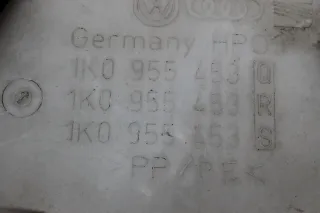 Germany HPO
1K0 955 453 Q
1K0 955 453 R
1K0 955 453 S
PP/PE<